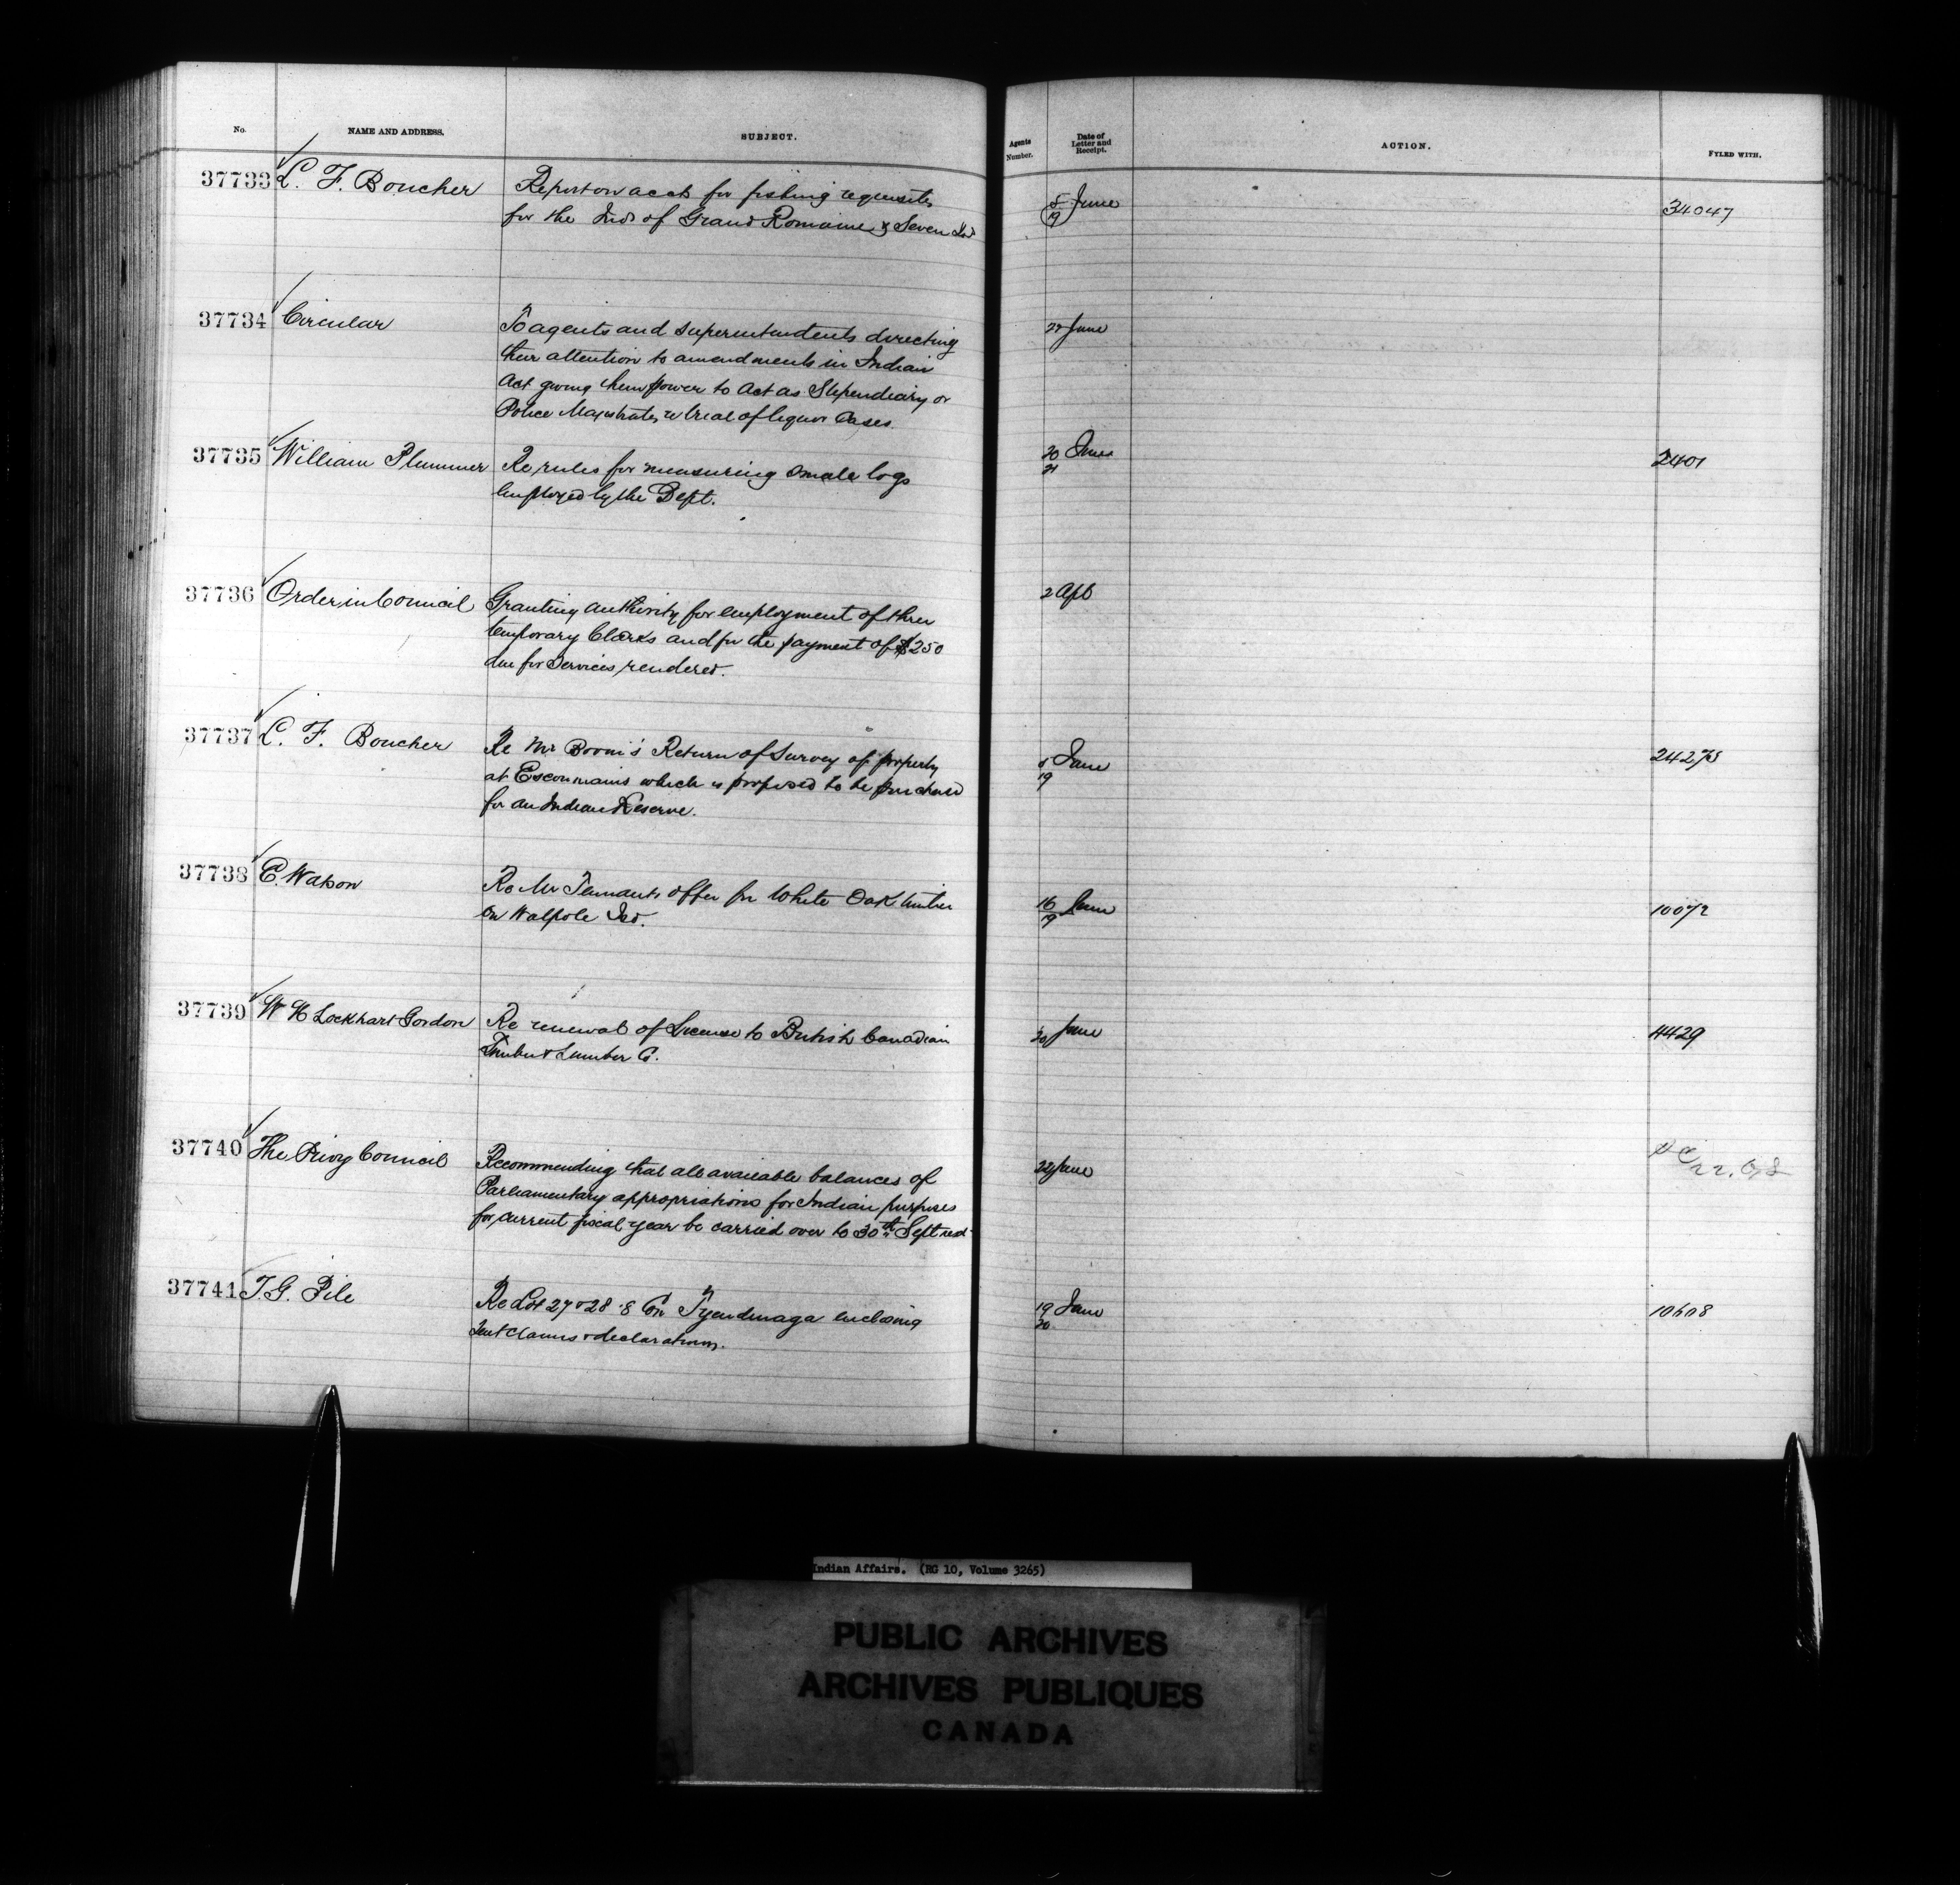 No. NAME AND ADDRESS. SUBJECT. Agents Number. Date of Letter and Receipt. ACTION. FYLED WITH.
37733 L. F. Boucher Report on accts for fishing requisites 5/19 June 34047
for the Inds of Grand Romaine & Seven Isds
37734 Circular To agents and superintendents directing 22 June
their attention to amendments in Indian
Act giving them power to Act as Stipendiary or
Police Magistrates re trial of liquor Cases.
37735 William Plummer Re rules for measuring smale logs 20/21 June 2401
employed by the Dept.
37736 Order in Council Granting authority for employment of three 2 Apl
temporary Clerks and for the payment of $250
due for services rendered.
37737 L. F. Boucher Re Mr Return of Survey of property 5/19 June 24275
at Escoumains which is proposed to be purchased
for an Indian Reserve.
37738 E. Watson Re Mr Tennants offer for White Oak timber 16/19 June 10072
on Walpole Isd.
37739 W H Lockhart Gordon Re renewal of License to British Canadian 20 June 4429
Timber & Lumber Co.
37740 The Privy Council Recommending that all available balances of 22 June
Parliamentary appropriations for Indian purposes
for current fiscal year be carried over to 30th Sept next
37741 T. G. Pile Re Lot 27 & 28 Con Tyendinaga enclosing 19/20 June
claims & declarations.
Indian Affairs. (RG 10, Volume 3265)
PUBLIC ARCHIVES
ARCHIVES PUBLIQUES
CANADA